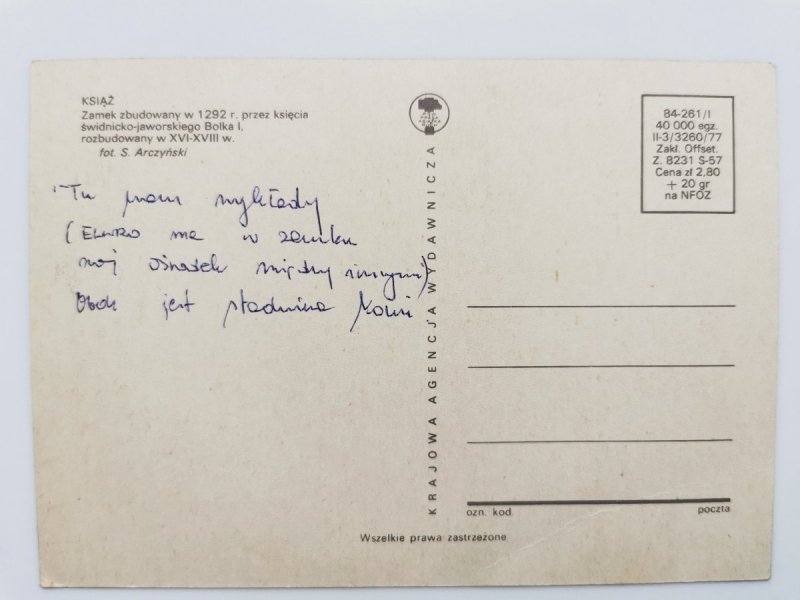 KSIĄŻ
Zamek zbudowany w 1292 r. przez księcia
świdnicko-jaworskiego Bolka I,
rozbudowany w XVI-XVIII w.
fot. S. Arczyński
Tu mam wykłady
( ma w zamku
swój ośrodek między innymi)
Obok jest stadnina koni
KRAJOWA AGENCJA WYDAWNICZA
84-261/I
40 000 egz.
II-3/3260/77
Zakł. Offset.
Z. 8231 S-57
Cena zł 2,80
+ 20 gr
na NFOZ
ozn. kod. poczta
Wszelkie prawa zastrzeżone